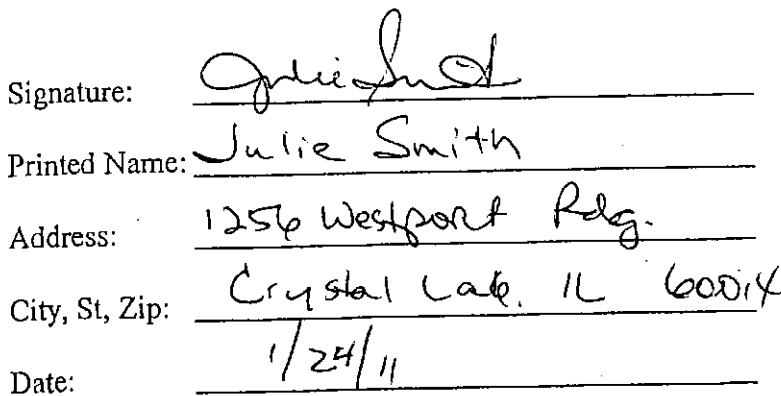 Signature: Julie Smith
Printed Name: Julie Smith
Address: 1256 Westport Rdg.
City, St, Zip: Crystal Lake, IL 60014
Date: 1/24/11